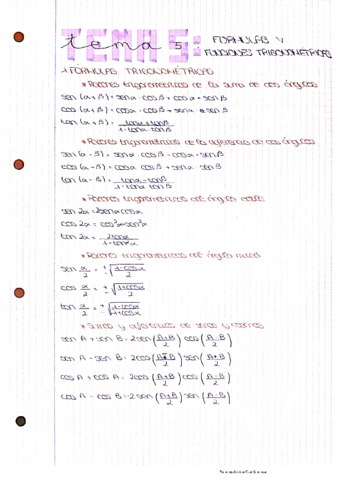 tema 5: FÓRMULAS Y
FUNCIONES TRIGONOMÉTRICAS
1. FÓRMULAS TRIGONOMÉTRICAS
* Razones trigonométricas de la suma de dos ángulos
sen (α+β) = senα · cosβ + cosα · senβ
cos (α+β) = cosα · cosβ - senα · senβ
tan (α+β) = tanα+tanβ / 1-tanα·tanβ
* Razones trigonométricas de la diferencia de dos ángulos
sen (α-β) = senα · cosβ - cosα · senβ
cos (α-β) = cosα · cosβ + senα · senβ
tan (α-β) = tanα-tanβ / 1-tanα·tanβ
* Razones trigonométricas del ángulo doble
sen 2α = 2senα cosα
cos 2α = cos²α-sen²α
tan 2α = 2tanα / 1-tan²α
* Razones trigonométricas del ángulo mitad
sen α/2 = ±√(1-cosα / 2)
cos α/2 = ±√(1+cosα / 2)
tan α/2 = ±√(1-cosα / 1+cosα)
* Sumas y diferencias de senos y cosenos
sen A + sen B = 2sen(A+B / 2) cos(A-B / 2)
sen A - sen B = 2cos(A+B / 2) sen(A-B / 2)
cos A + cos B = 2cos(A+B / 2) cos(A-B / 2)
cos A - cos B = -2sen(A+B / 2) sen(A-B / 2)